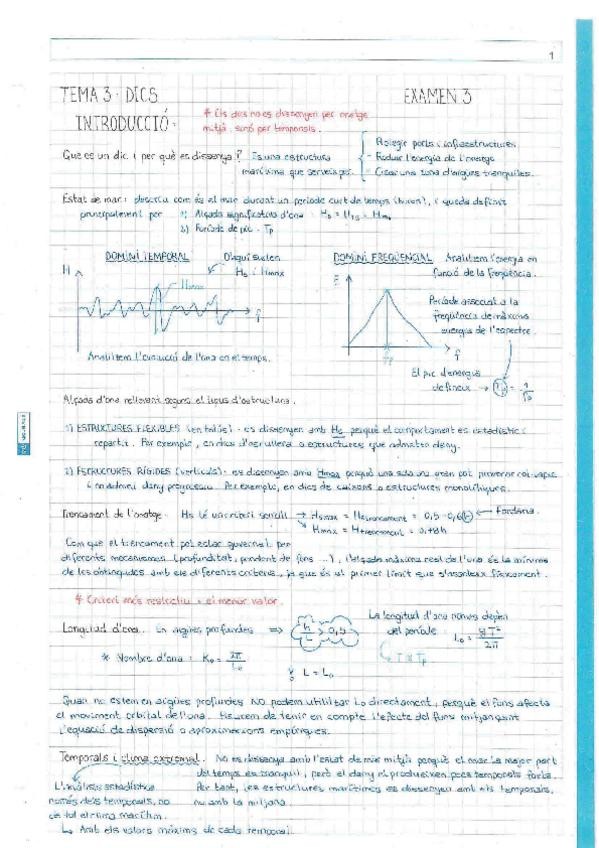 1
TEMA 3 - DICS
EXAMEN 3
INTRODUCCIÓ.
* Els dics no es dissenyen per onatge
mitjà, sinó per temporals.
Que es un dic i per què es dissenya? Es una estructura
marítima que serveix per:
- Protegir ports i infraestructures
- Reduir l'energia de l'onatge
- Crear una zona d'aigües tranquiles.
Estat de mar: descriu com és el mar durant un període curt de temps (hores), i queda definit
principalment per 1) Alçada significativa d'ona - Hs = H1/3 = Hm0
2) Període de pic - Tp
DOMINI TEMPORAL
D'aquí surten
Hs i Hmax
H
Hmax
t
Analitzem l'evolució de l'ona en el temps.
DOMINI FREQÜENCIAL Analitzem l'energia en
funció de la freqüència.
E
f
Període associat a la
freqüència de màxima
energia de l'espectre.
El pic d'energia
defineix → Tp = 1/fp
Alçada d'ona rellevant segons el tipus d'estructura.
1) ESTRUCTURES FLEXIBLES (en talús) - es dissenyen amb Hs perquè el comportament es estadístic i
repartit. Per exemple, en dics d'escullera o estructures que admeten dany.
2) ESTRUCTURES RÍGIDES (verticals): es dissenyen amb Hmax perquè una sola ona gran pot provocar col·lapse
i no admeten dany progressiu. Per exemple, en dics de caixons o estructures monolítiques.
Trencament de l'onatge. Hs té un criteri senzill → Hsmax = Htrencament = 0,5-0,6(h) ← Fondària.
→ Hmax = Htrencament = 0,78h
Com que el trencament pot estar governat per
diferents mecanismes (profunditat, pendent de fons ...), l'alçada màxima real de l'ona és la mínima
de les obtingudes amb els diferents criteris, ja que és el primer límit que s'assoleix físicament.
* Criteri més restrictiu = el menor valor.
Longitud d'ona. En aigües profundes ⇒ h/L > 0,5
La longitud d'ona només depèn
del període L0 = gT²/2π
T ≡ Tp
* Nombre d'ona: K0 = 2π/L0
L = L0
Quan no estem en aigües profundes NO podem utilitzar L0 directament, perquè el fons afecta
el moviment orbital de l'ona. Haurem de tenir en compte l'efecte del fons mitjançant
l'equació de dispersió o aproximacions empíriques.
Temporals i clima extremal. No es dissenya amb l'estat de mar mitjà perquè el mar la major part
del temps es tranquil, però el dany el produeixen pocs temporals forts.
Per tant, les estructures marítimes es dissenyen amb els temporals,
no amb la mitjana.
L'anàlisi estadística
només dels temporals, no
de tot el clima marítim.
↳ Amb els valors màxims de cada temporal.